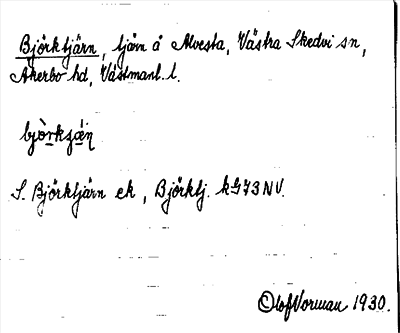 Björktjärn, tjärn å Alvesta, Västra Skedvi sn,
Åkerbo hd, Västmanl. l.
S. Björktjärn ek, Björktj. kG73NV.
Olof Vorman 1930.